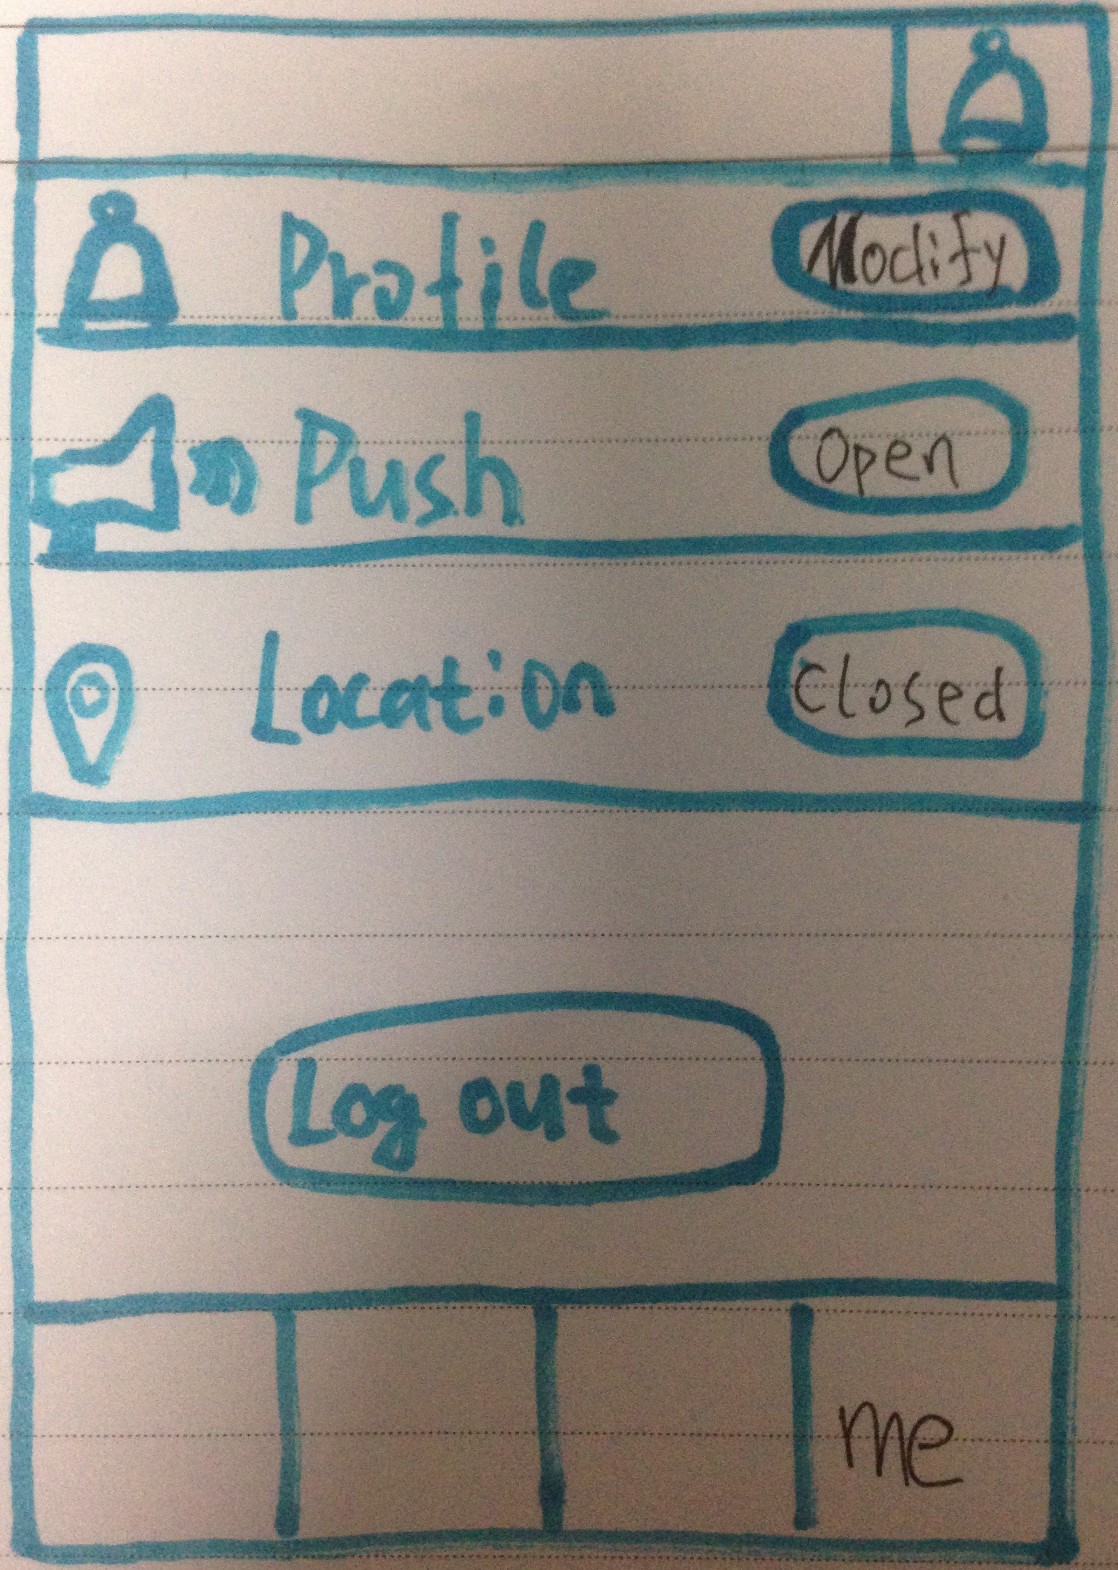 Profile Modify
Push Open
Location Closed
Log out
me